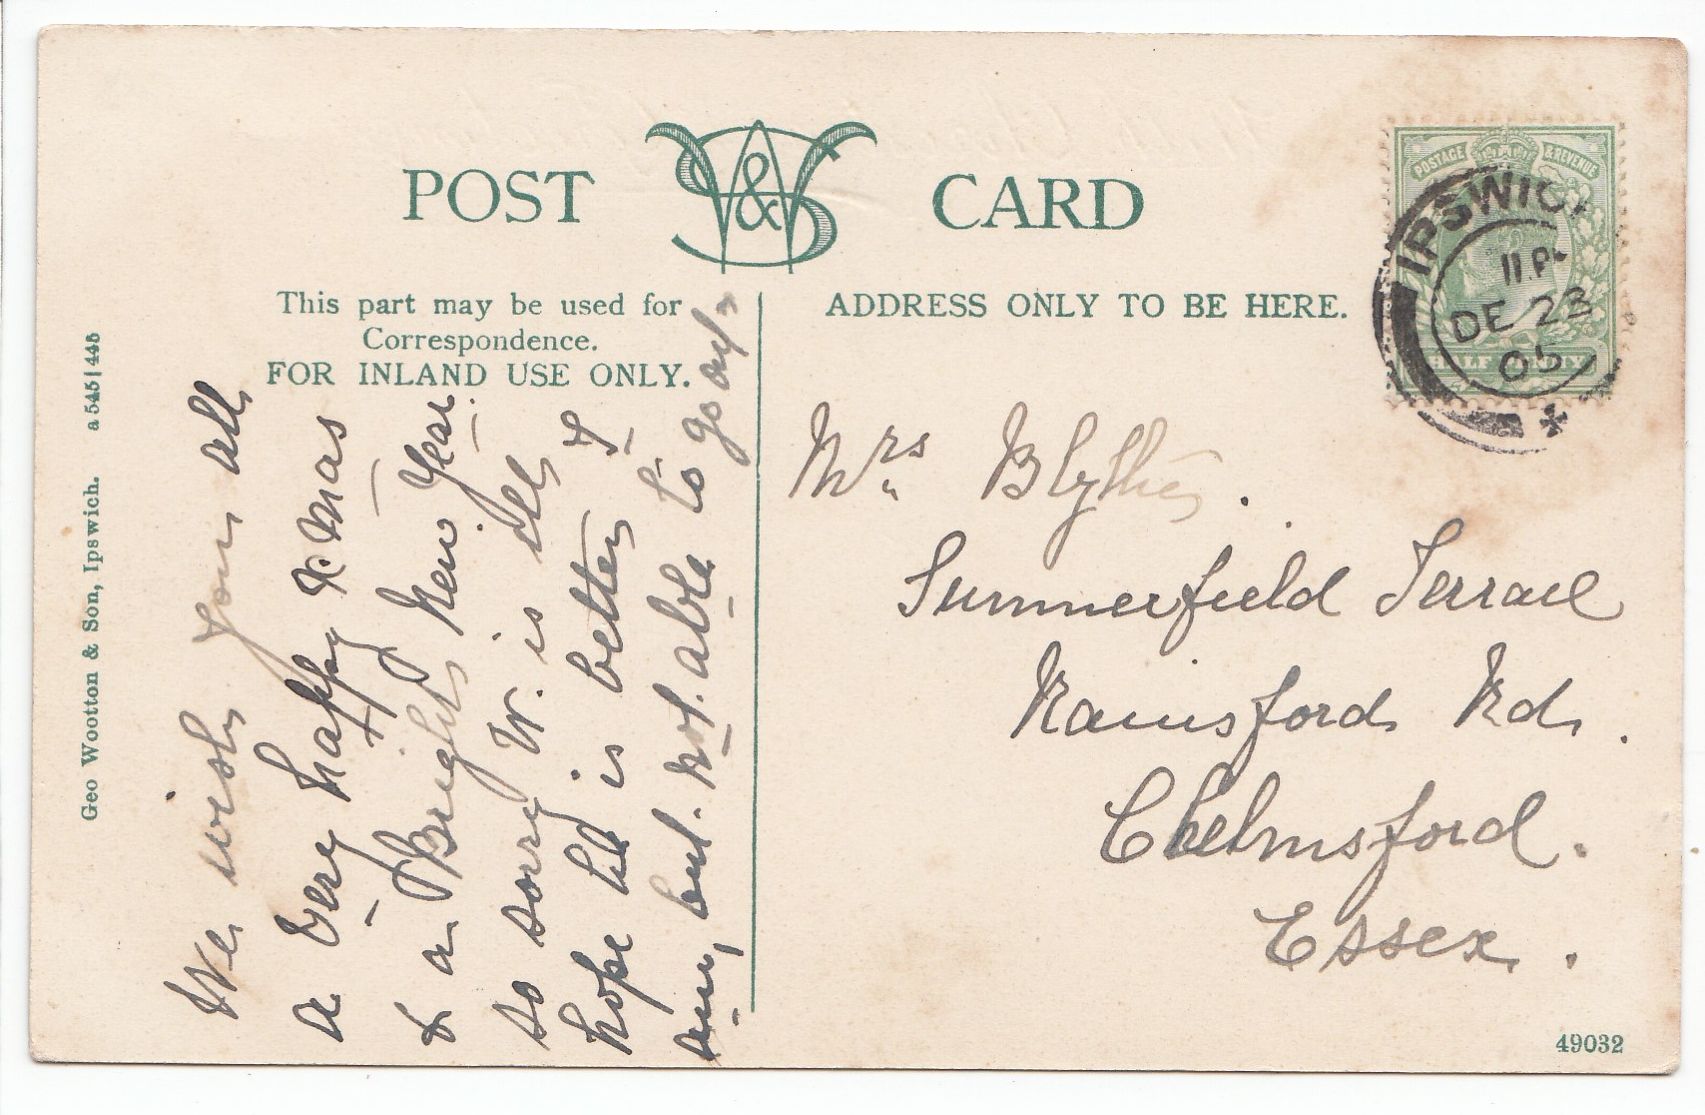 POST W&S CARD
This part may be used for
Correspondence.
FOR INLAND USE ONLY.
ADDRESS ONLY TO BE HERE.
POSTAGE & REVENUE
IPSWICH
DE 23
05
Geo Wootton & Son, Ipswich. a 545|445
We wish you all
a Very happy Xmas
& a Bright New Year.
So sorry W. is ill
hope he is better I
am, but not able to go out
Mrs Blythe.
Summerfield Terrace
Rainsford Rd.
Chelmsford.
Essex.
49032